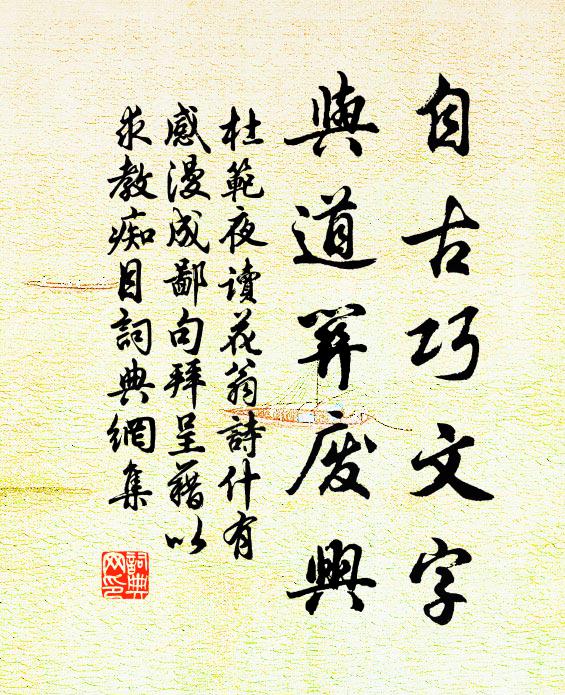 自古巧文字
與道筭废興
杜範夜讀花翁詩什有
感漫成鄙句拜呈藉以
求教痴目詞典網集
詞典
网印